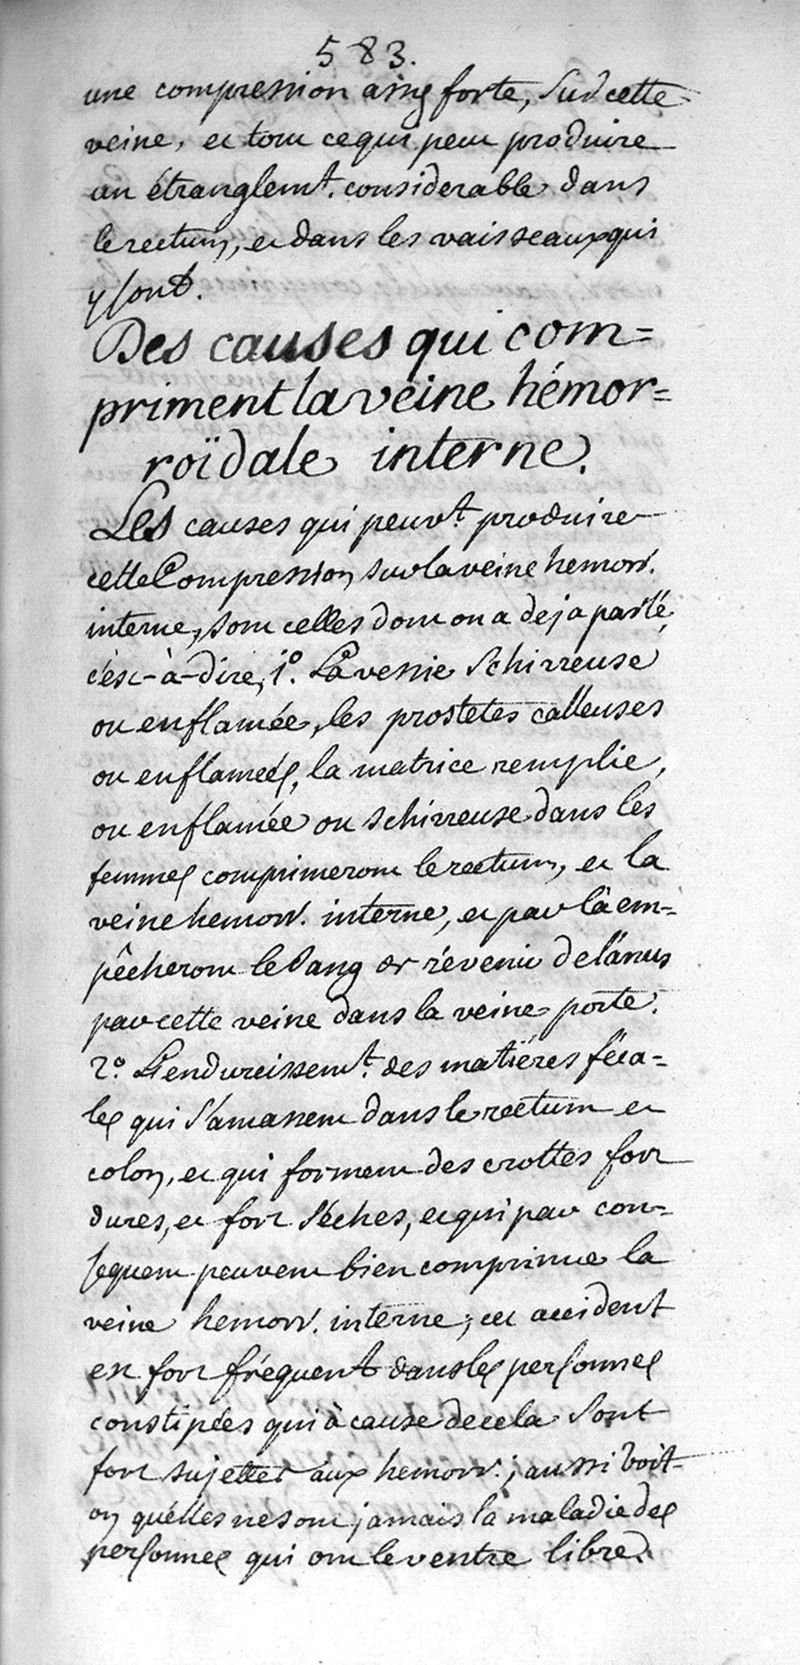 583.
une compression assés forte, sur cette
veine, et tout ce qui peut produire
un étranglemt. considerable dans
le rectum, et dans les vaisseaux qui
y sont.
Des causes qui com=
priment la veine hémor=
roïdale interne.
Les causes qui peuvt. produire
cette Compression sur la veine hemorr.
interne, sont celles dont on a deja parlé,
c'est-à-dire, 1º. La vessie schirreuse
ou enflamée, les prostetes calleuses
ou enflameés, la matrice remplie,
ou enflamée ou schirreuse dans les
femmes comprimeront le rectum, et la
veine hemorr. interne, et par là em=
pêcheront le sang de revenir de l'anus
par cette veine dans la veine porte.
2º. L'endurcissemt. des matiéres féca=
les qui s'amassent dans le rectum et
colon, et qui forment des crottes fort
dures, et fort séches, et qui par con=
sequent peuvent bien comprimer la
veine hemorr. interne; cet accident
est fort fréquent dans les personnes
constipées qui à cause de cela sont
fort sujettes aux hemorr.; aussi voit-
on qu'elles ne sont jamais la maladie des
personnes qui ont le ventre libre.